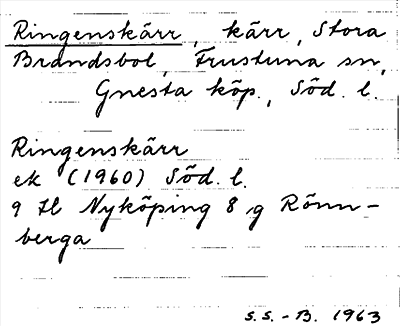 Ringenskärr, kärr, Stora
Brandsbol, Frustuna sn,
Gnesta köp., Söd. l.
Ringenskärr
ek (1960) Söd. l.
9 H Nyköping 8 g Rönn-
berga
S.S.-B. 1963